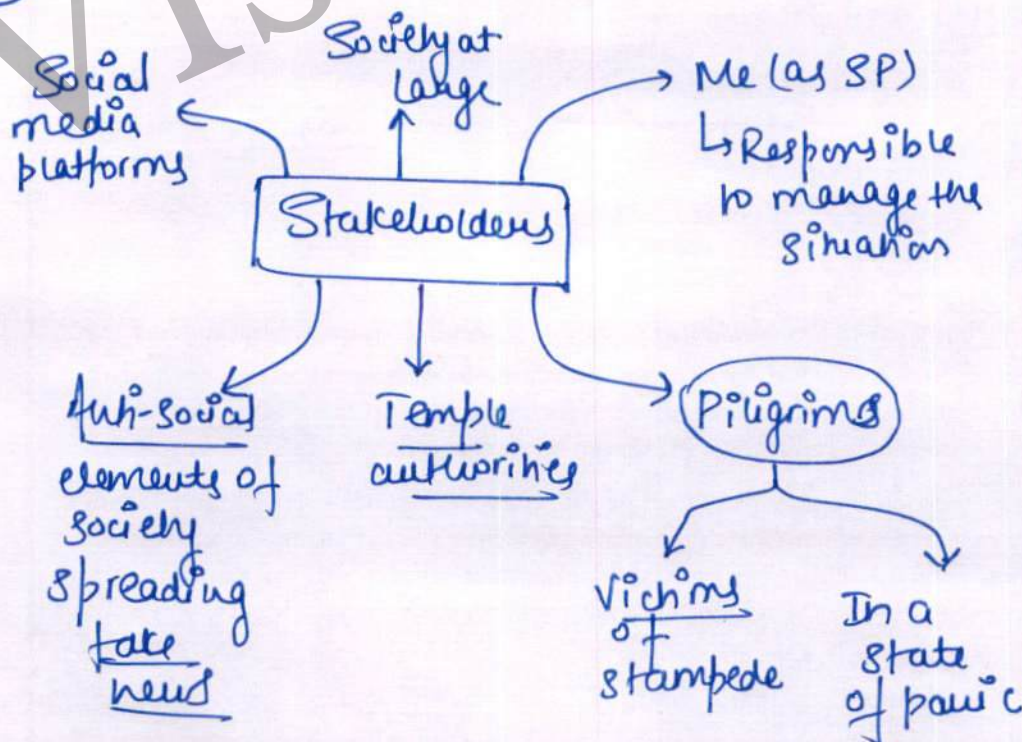 Vis
Society at
large
Social
media
platforms
Me (as SP)
↳ Responsible
to manage the
situation
Stakeholders
Anti-social
elements of
society
spreading
fake
news
Temple
authorities
Piligrims
Victims
of
stampede
In a
state
of panic